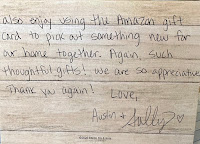 also enjoy using the Amazon gift
card to pick out something new for
our home together. Again, such
thoughtful gifts! We are so appreciative.
Thank you again! Love,
Austin + Shelby ♡